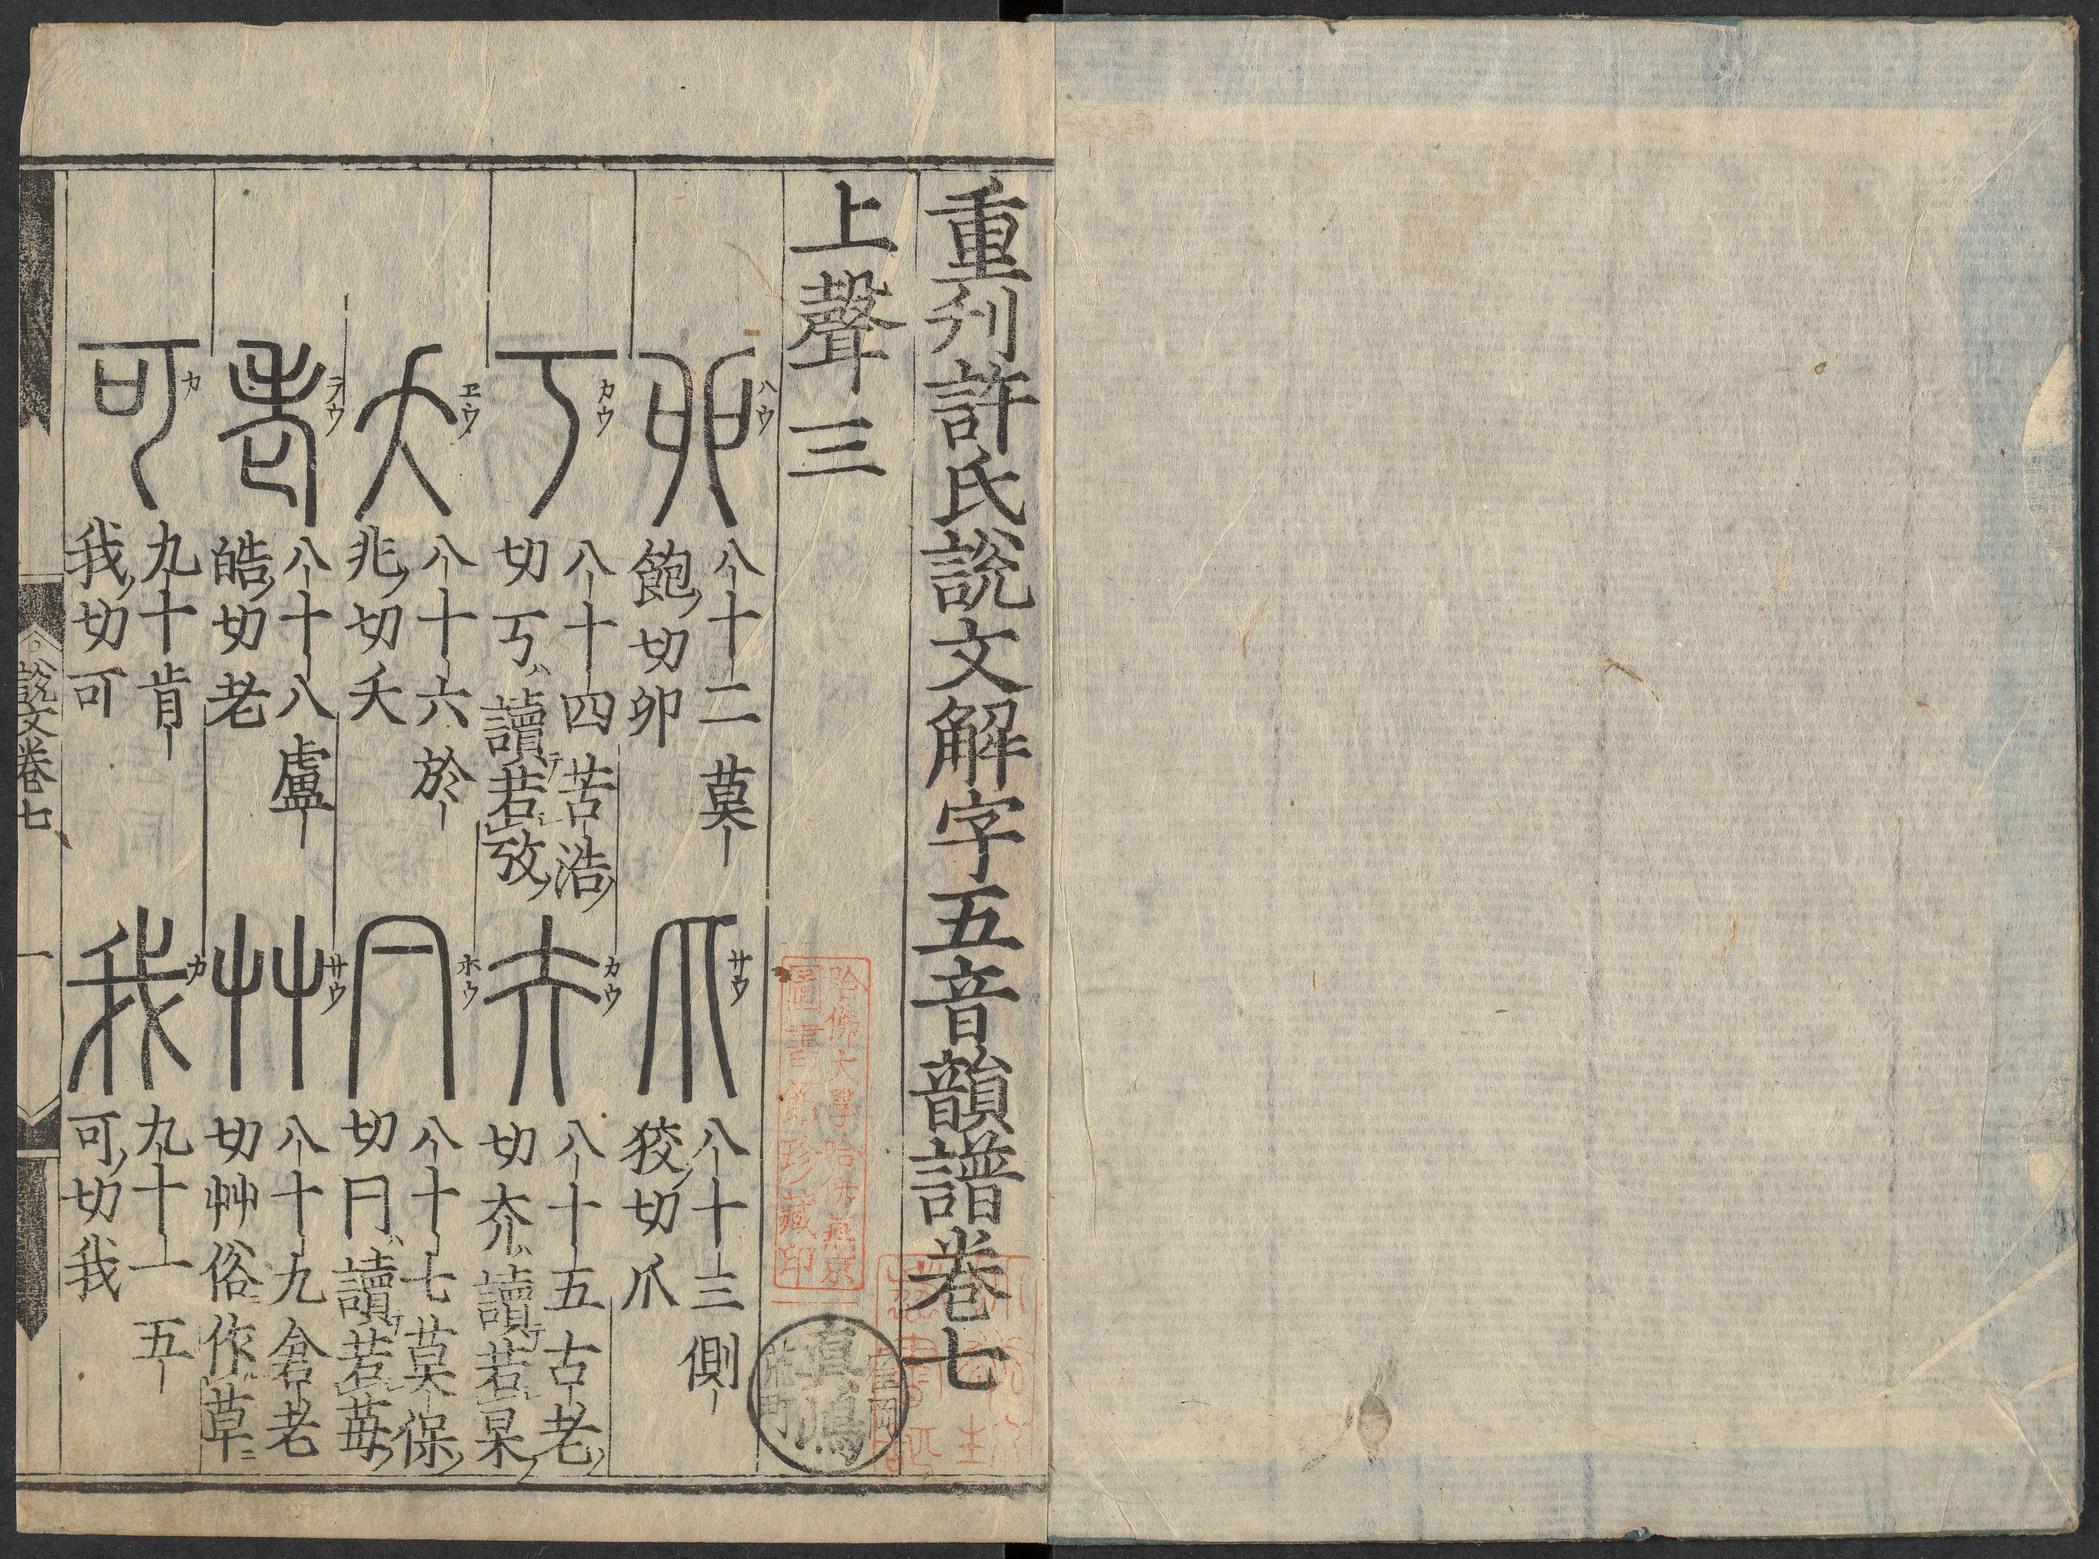 重刋許氏說文解字五音韻譜卷七
上聲三
卯 ハウ 八十二莫飽切卯
爪 サウ 八十三側狡切爪
丂 カウ 八十四苦浩切丂讀若攷
夰 カウ 八十五古老切夰讀若杲
夭 ヱウ 八十六於兆切夭
冃 ホウ 八十七莫保切冃讀若蓩
老 ラウ 八十八盧皓切老
艸 サウ 八十九倉老切艸俗作草
可 カ 九十肯我切可
我 カ 九十一五可切我
說文卷七
一
哈佛大學哈佛燕京
圖書館珍藏印
真嶋